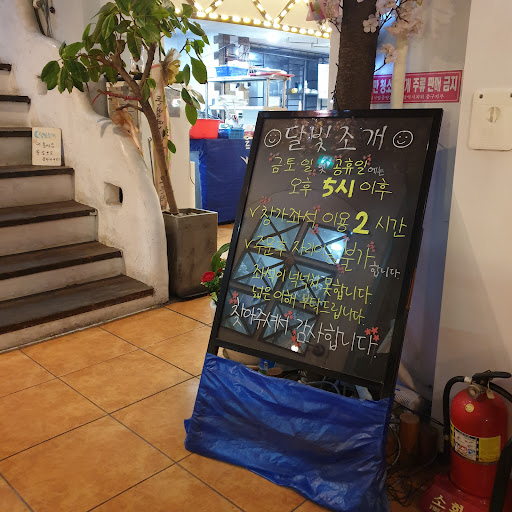 달빛조개
금토일 및 공휴일에는
오후 5시 이후
✓창가좌석 이용 2시간
✓주문 후 자리 불가합니다
좌석이 넉넉하지 못합니다.
넓은 이해 부탁드립니다.
찾아주셔서 감사합니다.
주류 판매 금지
소화